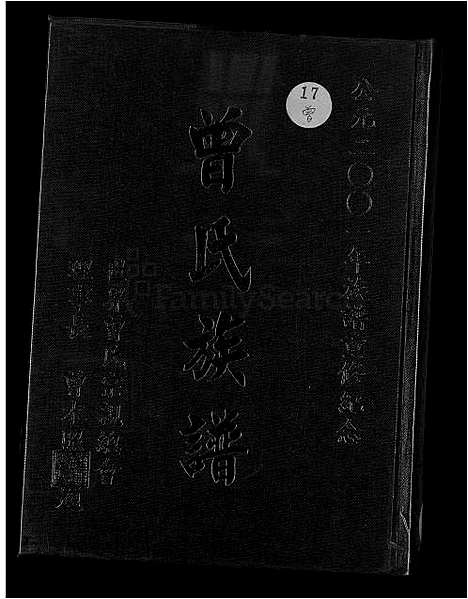 公元二〇〇一年族譜重修紀念
17
曾
曾氏族譜
曾氏宗親總會
理事長 曾
FamilySearch